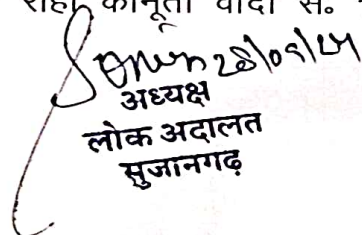 कानूता वादी सं॰
28/09/24
अध्यक्ष
लोक अदालत
सुजानगढ़